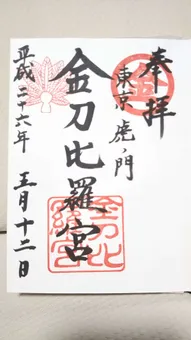 奉拝
東京 虎ノ門
金刀比羅宮
平成二十六年 五月十二日
金刀比羅宮